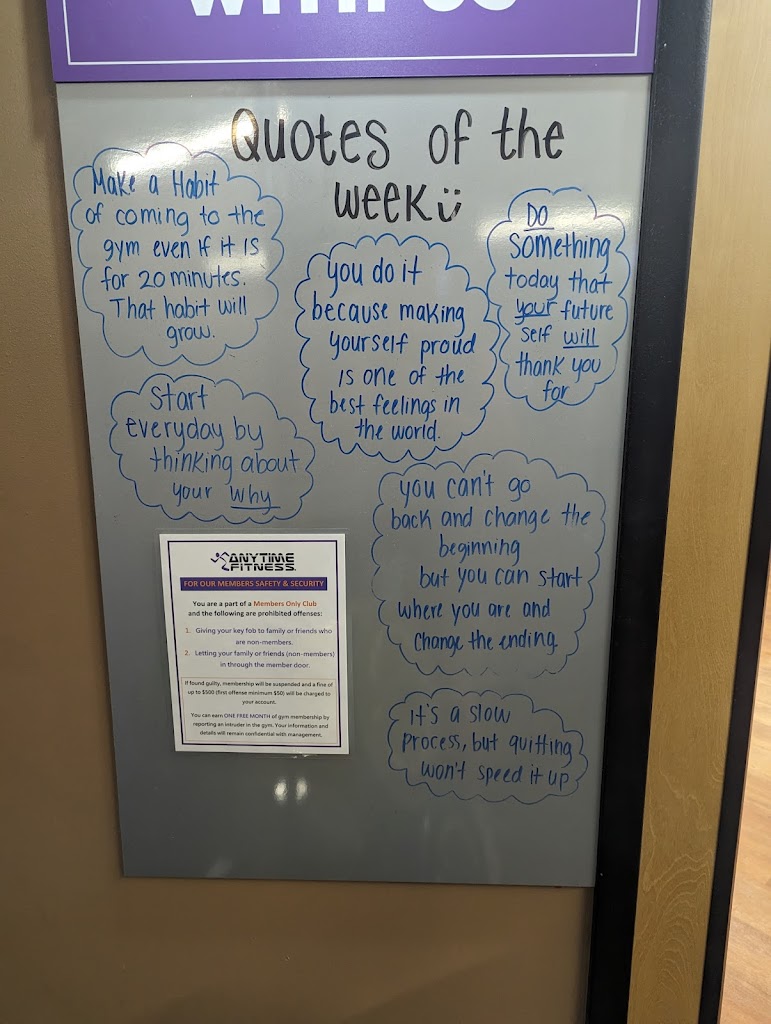 WITH US
Quotes of the
week
Make a Habit
of coming to the
gym even if it is
for 20 minutes.
That habit will
grow.
you do it
because making
yourself proud
is one of the
best feelings in
the world.
DO
something
today that
your future
self will
thank you
for
Start
everyday by
thinking about
your why
you can't go
back and change the
beginning
but you can start
where you are and
change the ending.
it's a slow
process, but quitting
won't speed it up
ANYTIME
FITNESS
FOR OUR MEMBERS SAFETY & SECURITY
You are a part of a Members Only Club
and the following are prohibited offenses:
1. Giving your key fob to family or friends who
are non-members.
2. Letting your family or friends (non-members)
in through the member door.
If found guilty, membership will be suspended and a fine of
up to $500 (first offense minimum $50) will be charged to
your account.
You can earn ONE FREE MONTH of gym membership by
reporting an intruder in the gym. Your information and
details will remain confidential with management.